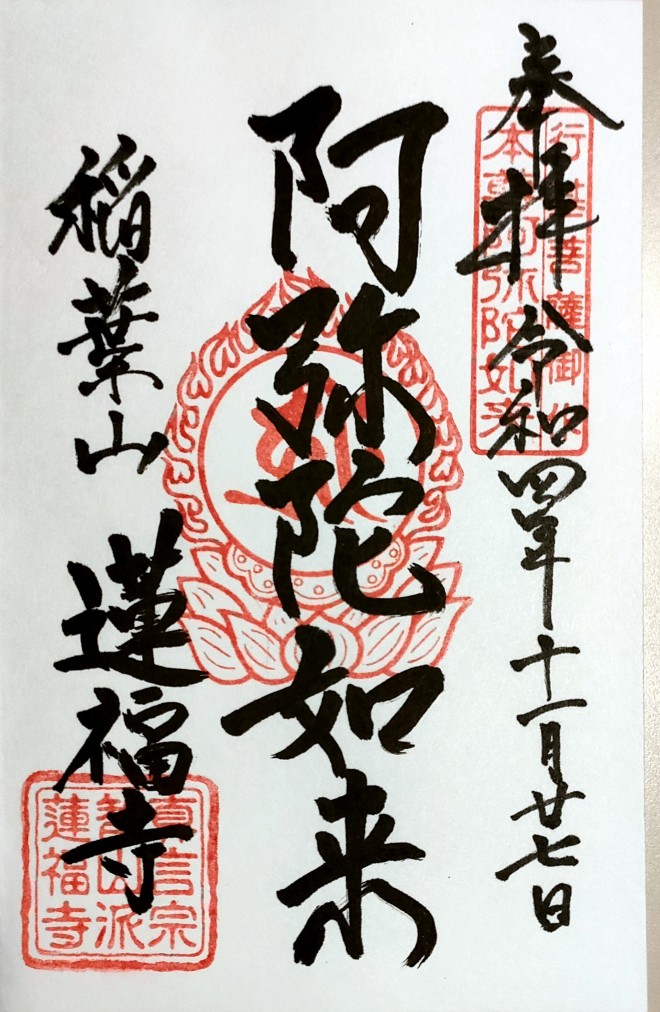 奉拝 令和四年十一月廿七日
行基菩薩御作
本尊阿弥陀如来
阿弥陀如来
稲葉山 蓮福寺
真言宗
智山派
蓮福寺